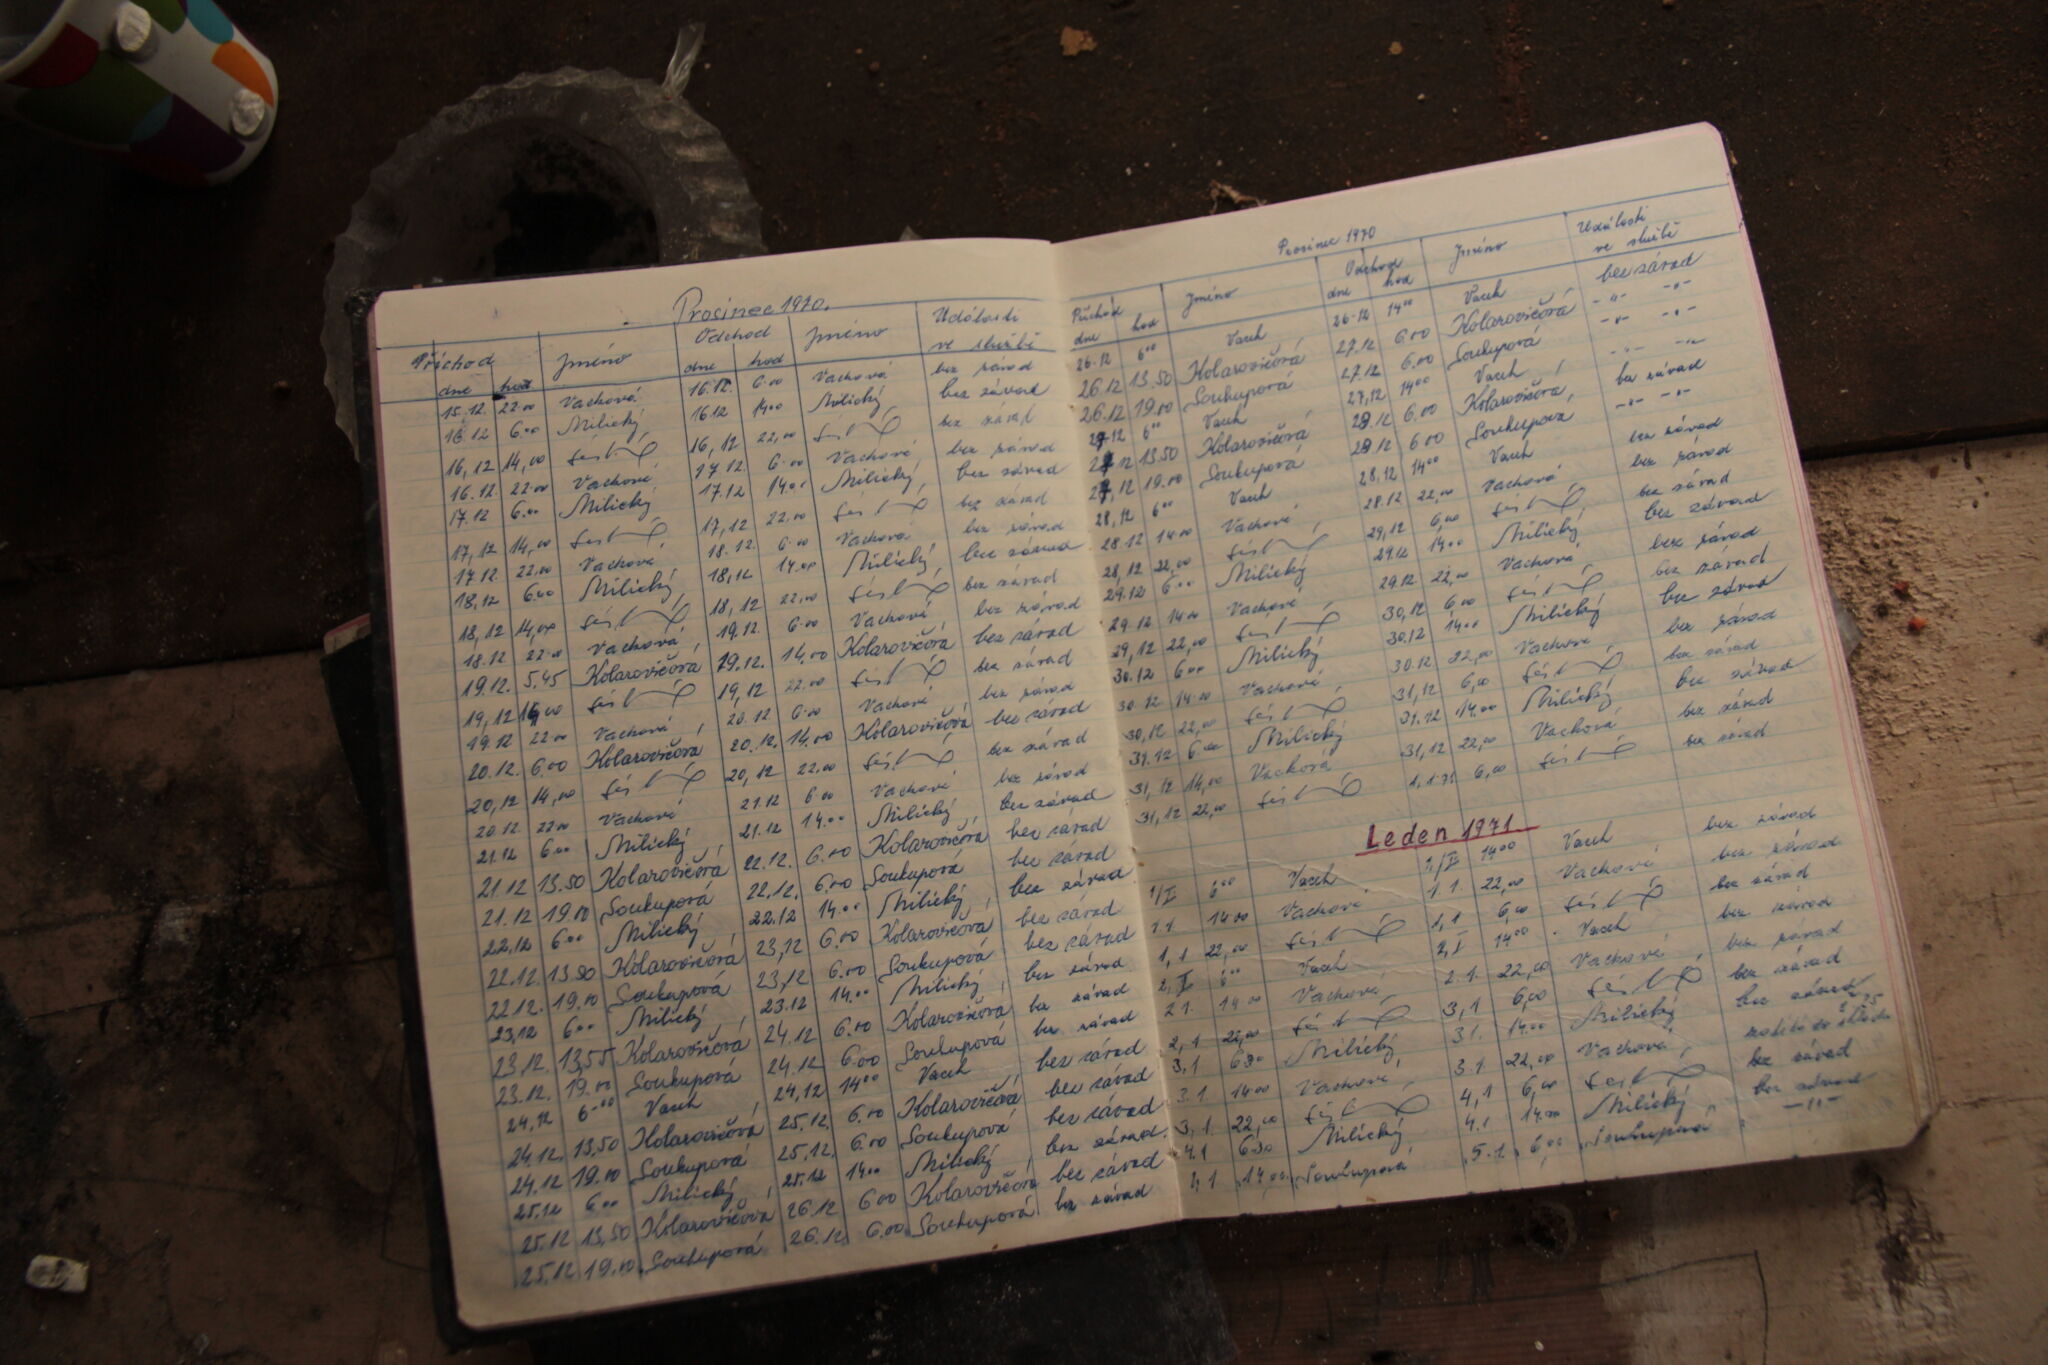 Prosinec 1970.
Příchod Jméno Odchod Jméno Události
dne hod dne hod ve službě
15.12. 22.00 Vachová 16.12. 6.00 Vachová bez závad
16.12 6.00 Milický 16.12 14.00 Milický bez závad
16,12 14,00 16,12 22,00 bez závad
16.12. 22.00 Vachová 17.12. 6.00 Vachová bez závad
17.12 6.00 Milický 17.12 14.00 Milický bez závad
17,12 14,00 17,12 22.00 bez závad
17.12. 22.00 Vachová 18.12. 6.00 Vachová bez závad
18,12 6.00 Milický 18,12 14.00 Milický bez závad
18,12 14,00 18,12 22,00 bez závad
18.12 22.00 Vachová 19.12. 6.00 Vachová bez závad
19.12. 5,45 Kolarovičová 19.12. 14.00 Kolarovičová bez závad
19,12 14,00 19,12 22.00 bez závad
19.12 22.00 Vachová 20.12 6.00 Vachová bez závad
20.12. 6.00 Kolarovičová 20.12. 14.00 Kolarovičová bez závad
20,12 14,00 20,12 22.00 bez závad
20.12. 22.00 Vachová 21.12 6.00 Vachová bez závad
21.12 6.00 Milický 21.12 14.00 Milický bez závad
21.12 13.50 Kolarovičová 22.12. 6.00 Kolarovičová bez závad
21.12 19.00 Soukupová 22.12. 6.00 Soukupová bez závad
22,12 6.00 Milický 22.12 14.00 Milický bez závad
22.12. 13.50 Kolarovičová 23,12 6.00 Kolarovičová bez závad
22.12. 19.00 Soukupová 23,12 6.00 Soukupová bez závad
23,12 6.00 Milický 23.12 14.00 Milický bez závad
23.12. 13,55 Kolarovičová 24.12 6.00 Kolarovičová bez závad
23.12. 19.00 Soukupová 24.12 6.00 Soukupová bez závad
24,12 6.00 Vaceh 24,12 14.00 Vaceh bez závad
24.12. 13,50 Kolarovičová 25.12. 6.00 Kolarovičová bez závad
24.12 19.00 Soukupová 25.12. 6.00 Soukupová bez závad
25.12 6.00 Milický 25.12 14.00 Milický bez závad
25.12 13,50 Kolarovičová 26.12 6.00 Kolarovičová bez závad
25.12 19.00 Soukupová 26.12. 6.00 Soukupová bez závad
Prosinec 1970
Příchod Jméno Odchod Jméno Události
dne hod dne hod ve službě
26.12 6.00 Vaceh 26.12 14.00 Vaceh bez závad
26.12 13.50 Kolarovičová 27.12 6.00 Kolarovičová -"- -"-
26.12 19.00 Soukupová 27.12 6.00 Soukupová -"- -"-
27.12 6.00 Vaceh 27,12 14.00 Vaceh -"- -"-
27.12 13.50 Kolarovičová 28.12 6.00 Kolarovičová bez závad
27,12 19.00 Soukupová 28.12 6.00 Soukupová -"- -"-
28,12 6.00 Vaceh 28,12 14.00 Vaceh bez závad
28.12 14.00 Vachová 28.12 22,00 Vachová bez závad
28,12 22,00 29,12 6,00 bez závad
29.12 6.00 Milický 29.12 14.00 Milický bez závad
29.12 14.00 Vachová 29.12 22,00 Vachová bez závad
29,12 22,00 30,12 6,00 bez závad
30.12 6.00 Milický 30.12 14.00 Milický bez závad
30.12 14.00 Vachová 30.12 22,00 Vachová bez závad
30,12 22,00 31,12 6,00 bez závad
31.12 6.00 Milický 31.12 14.00 Milický bez závad
31,12 14,00 Vachová 31,12 22,00 Vachová bez závad
31,12 22,00 1,1.71 6,00 bez závad
Leden 1971
1/I 6.00 Vaceh 1/I 14.00 Vaceh bez závad
1.1. 14.00 Vachová 1.1. 22,00 Vachová bez závad
1,1 22,00 1,1 6,00 bez závad
2,I 6.00 Vaceh 2,I 14.00 Vaceh bez závad
2.1. 14.00 Vachová 2.1. 22,00 Vachová bez závad
2,1 22,00 3,1 6,00 bez závad
3,1 6.30 Milický 3.1. 14.00 Milický bez závad
3.1. 14.00 Vachová 3.1. 22,00 Vachová
3,1. 22,00 4,1 6,00 bez závad
4.1 6.30 Milický 4.1. 14.00 Milický bez závad
4.1. 14.00 Soukupová 5.1. 6,00 Soukupová -"-